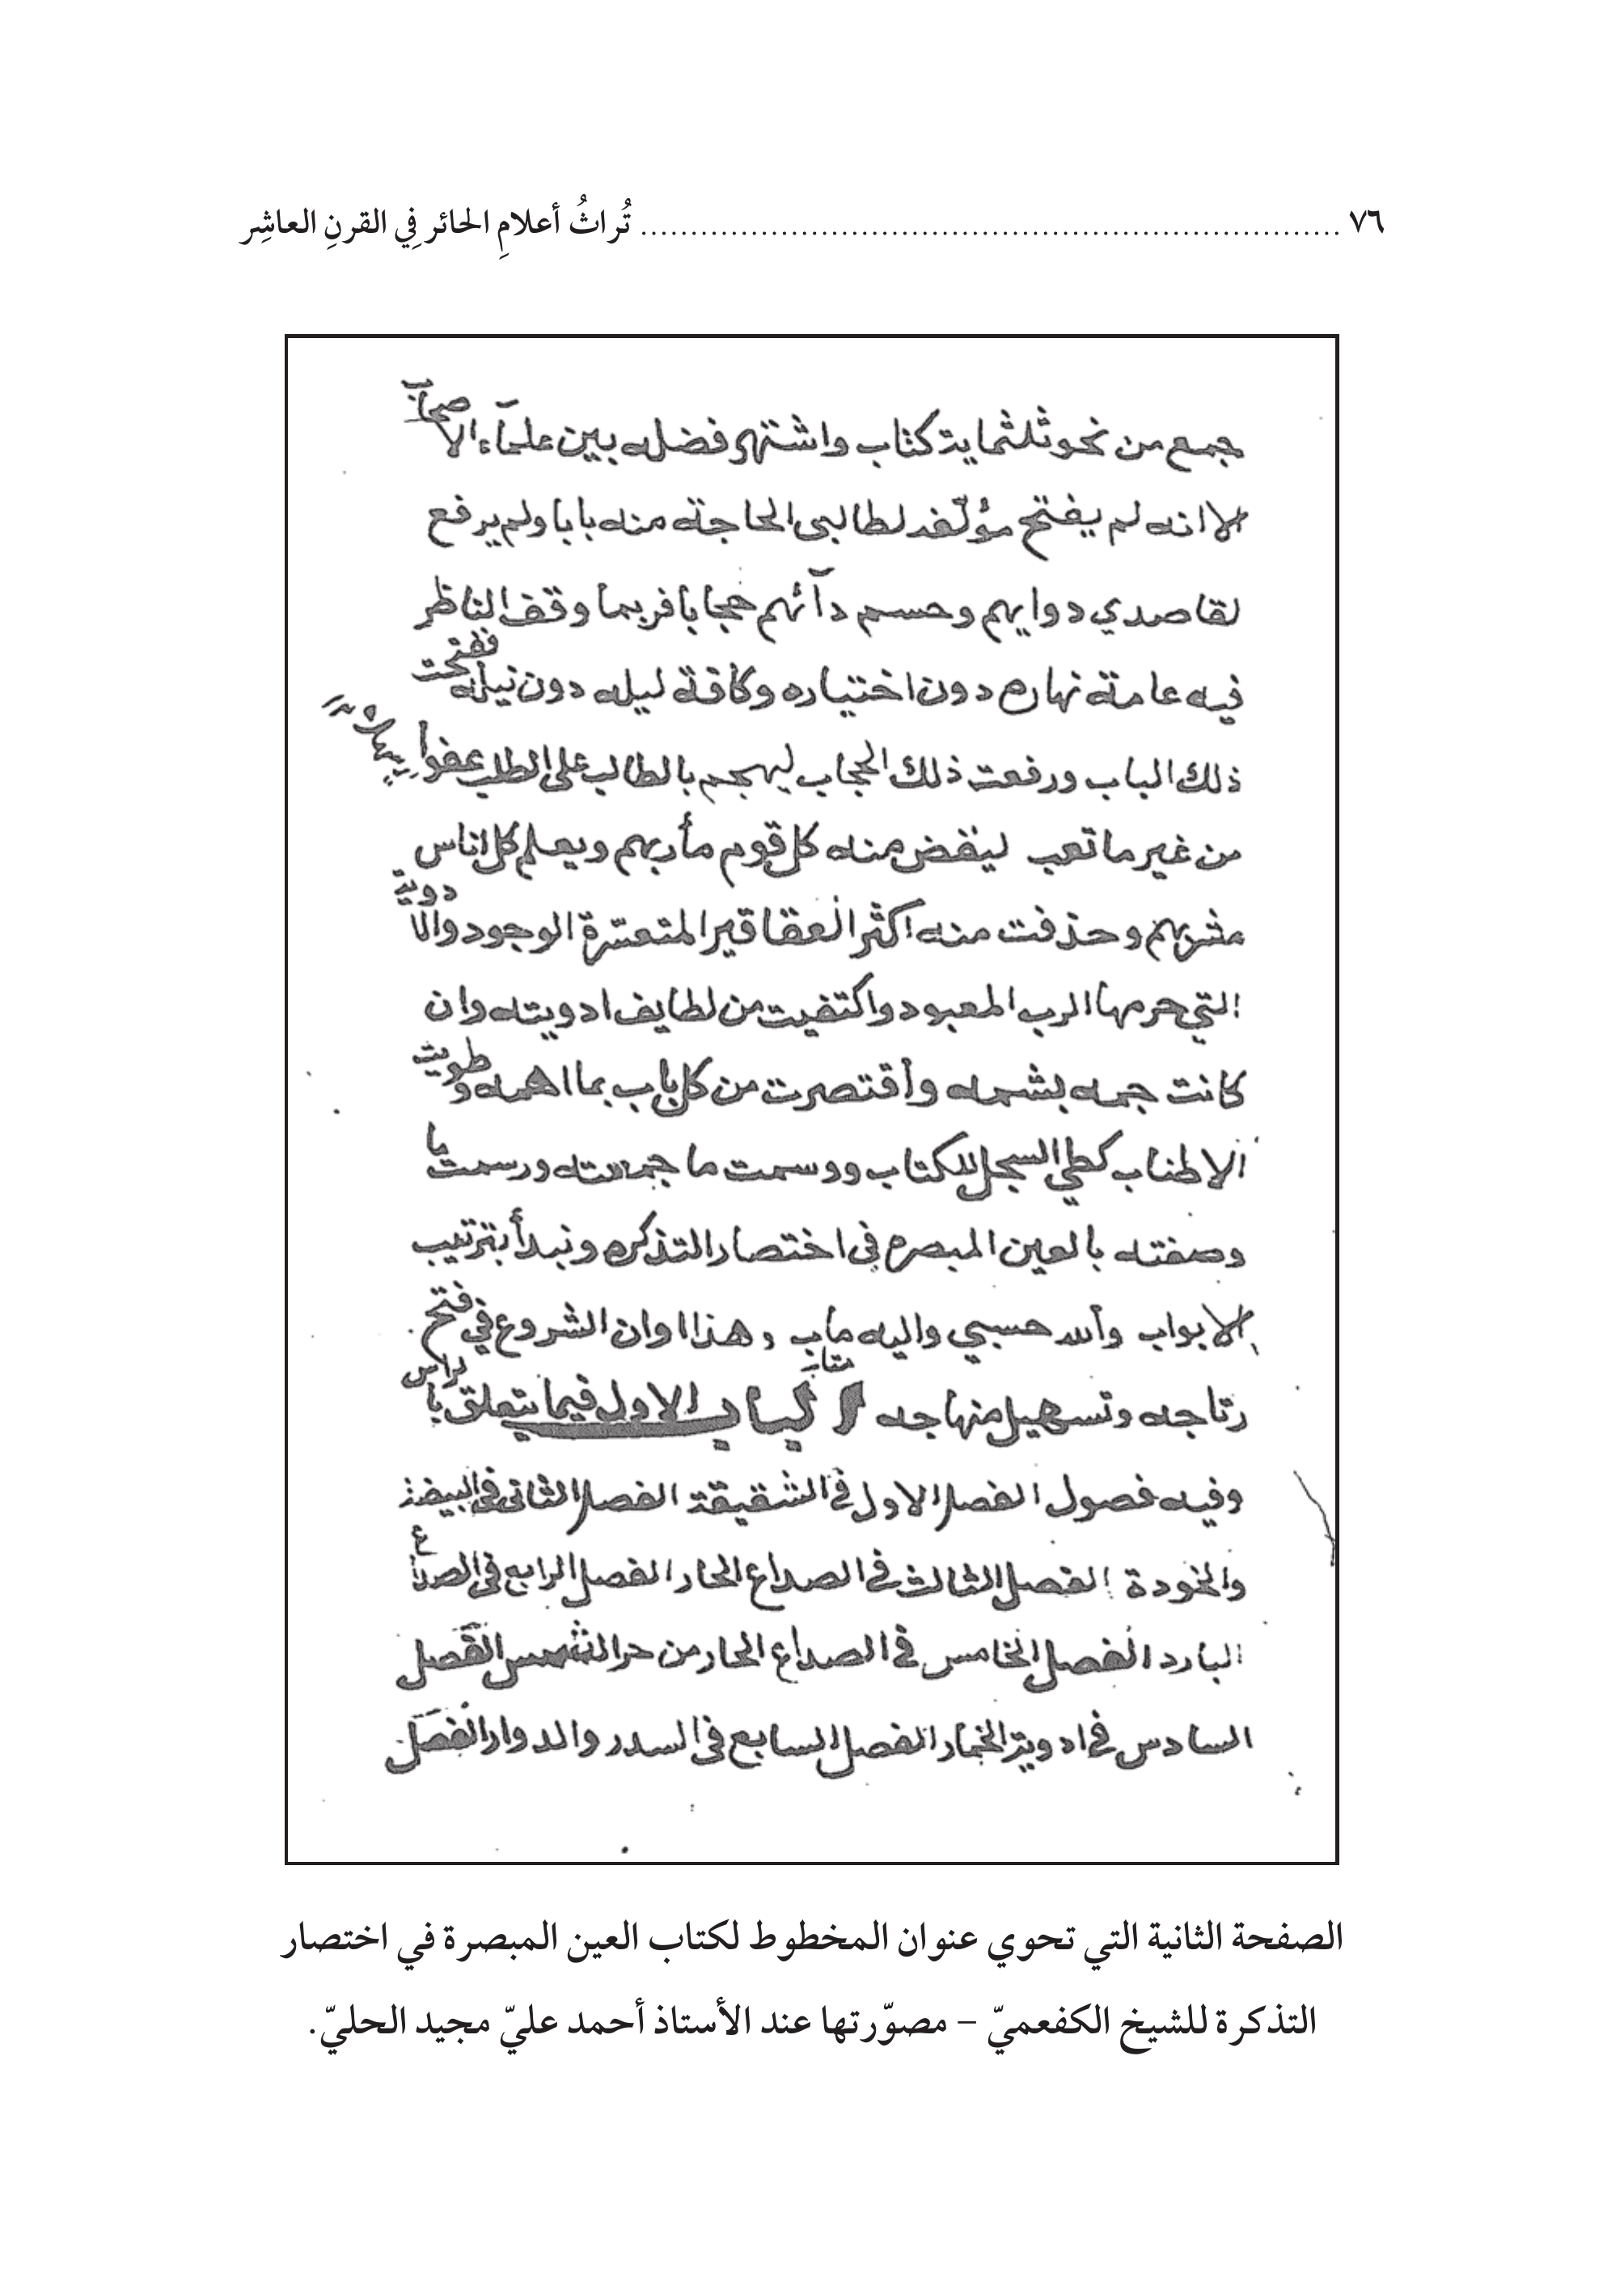 ٧٦ ........................................................................ تُراثُ أعلامِ الحائر فِي القرنِ العاشِر
جمع من نحو ثلثماية كتاب واشتهر فضله بين علمآء الاصحاب
الا انه لم يفتح مؤلّفه لطالبى الحاجة منه بابا ولم يرفع
لقاصدي دوايهم وحسم دآئهم حجابا فربما وقف الناظر
فيه عامة نهاره دون اختياره وكافة ليله دون نيله ففتحت
ذلك الباب ورفعت ذلك الحجاب ليهجم بالطالب على الطلب عفوا
من غير ما تعب ليقض منه كل قوم مأربهم ويعلم كل اناس
مشربهم وحذفت منه اكثر العقاقير المتعسّرة الوجود والادوية
التي حرمها الرب المعبود واكتفيت من لطايف ادويته وان
كانت جمه بشمه وأقتصرت من كل باب بما اهمه وطويت
الاطناب كطي السجل للكتاب ووسمت ما جمعته ورسمت ما
وصفته بالعين المبصره فى اختصار التذكره ونبدأ بترتيب
الابواب وألله حسبي واليه مأب وهذا اوان الشروع في فتح
رتاجه وتسهيل منهاجه الباب الاول فيما يتعلق بالراس
وفيه فصول الفصل الاول في الشقيقة الفصل الثانى فى البيضة
والخودة الفصل الثالث فى الصداع الحار الفصل الرابع فى الصداع
البارد الفصل الخامس فى الصداع الحار من حر الشمس الفصل
السادس فى ادوية الخمار الفصل السابع فى السدر والدوار الفصل
الصفحة الثانية التي تحوي عنوان المخطوط لكتاب العين المبصرة في اختصار
التذكرة للشيخ الكفعميّ – مصوّرتها عند الأستاذ أحمد عليّ مجيد الحليّ.